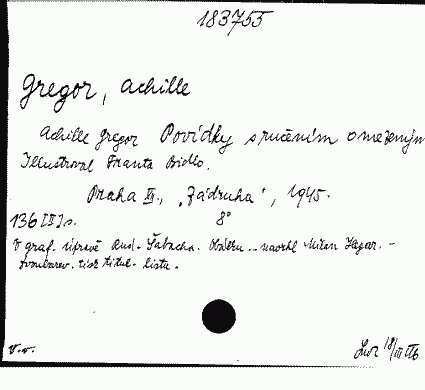 183755
Gregor, Achille
Achille Gregor Povídky s ručením omezeným
Illustroval Franta Bidlo.
Praha XII., „Zádruha", 1945.
136 [II] s. 8°
V graf. úpravě Aug. Obálku navrhl Milan
tisk titul. listu.
V.v. 18/III